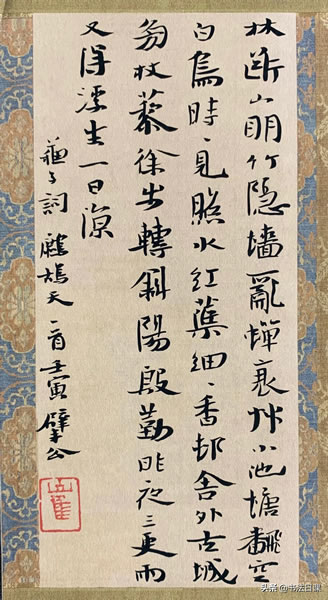 林斷山明竹隐墙亂蟬衰艸小池塘飜空
白鳥時、見照水紅蕖細、香邨舍外古城
旁杖藜徐步轉斜陽殷勤昨夜三更雨
又得浮生一日涼
蘇子詞 鷓鴣天一首壬寅
头条 @书法日课